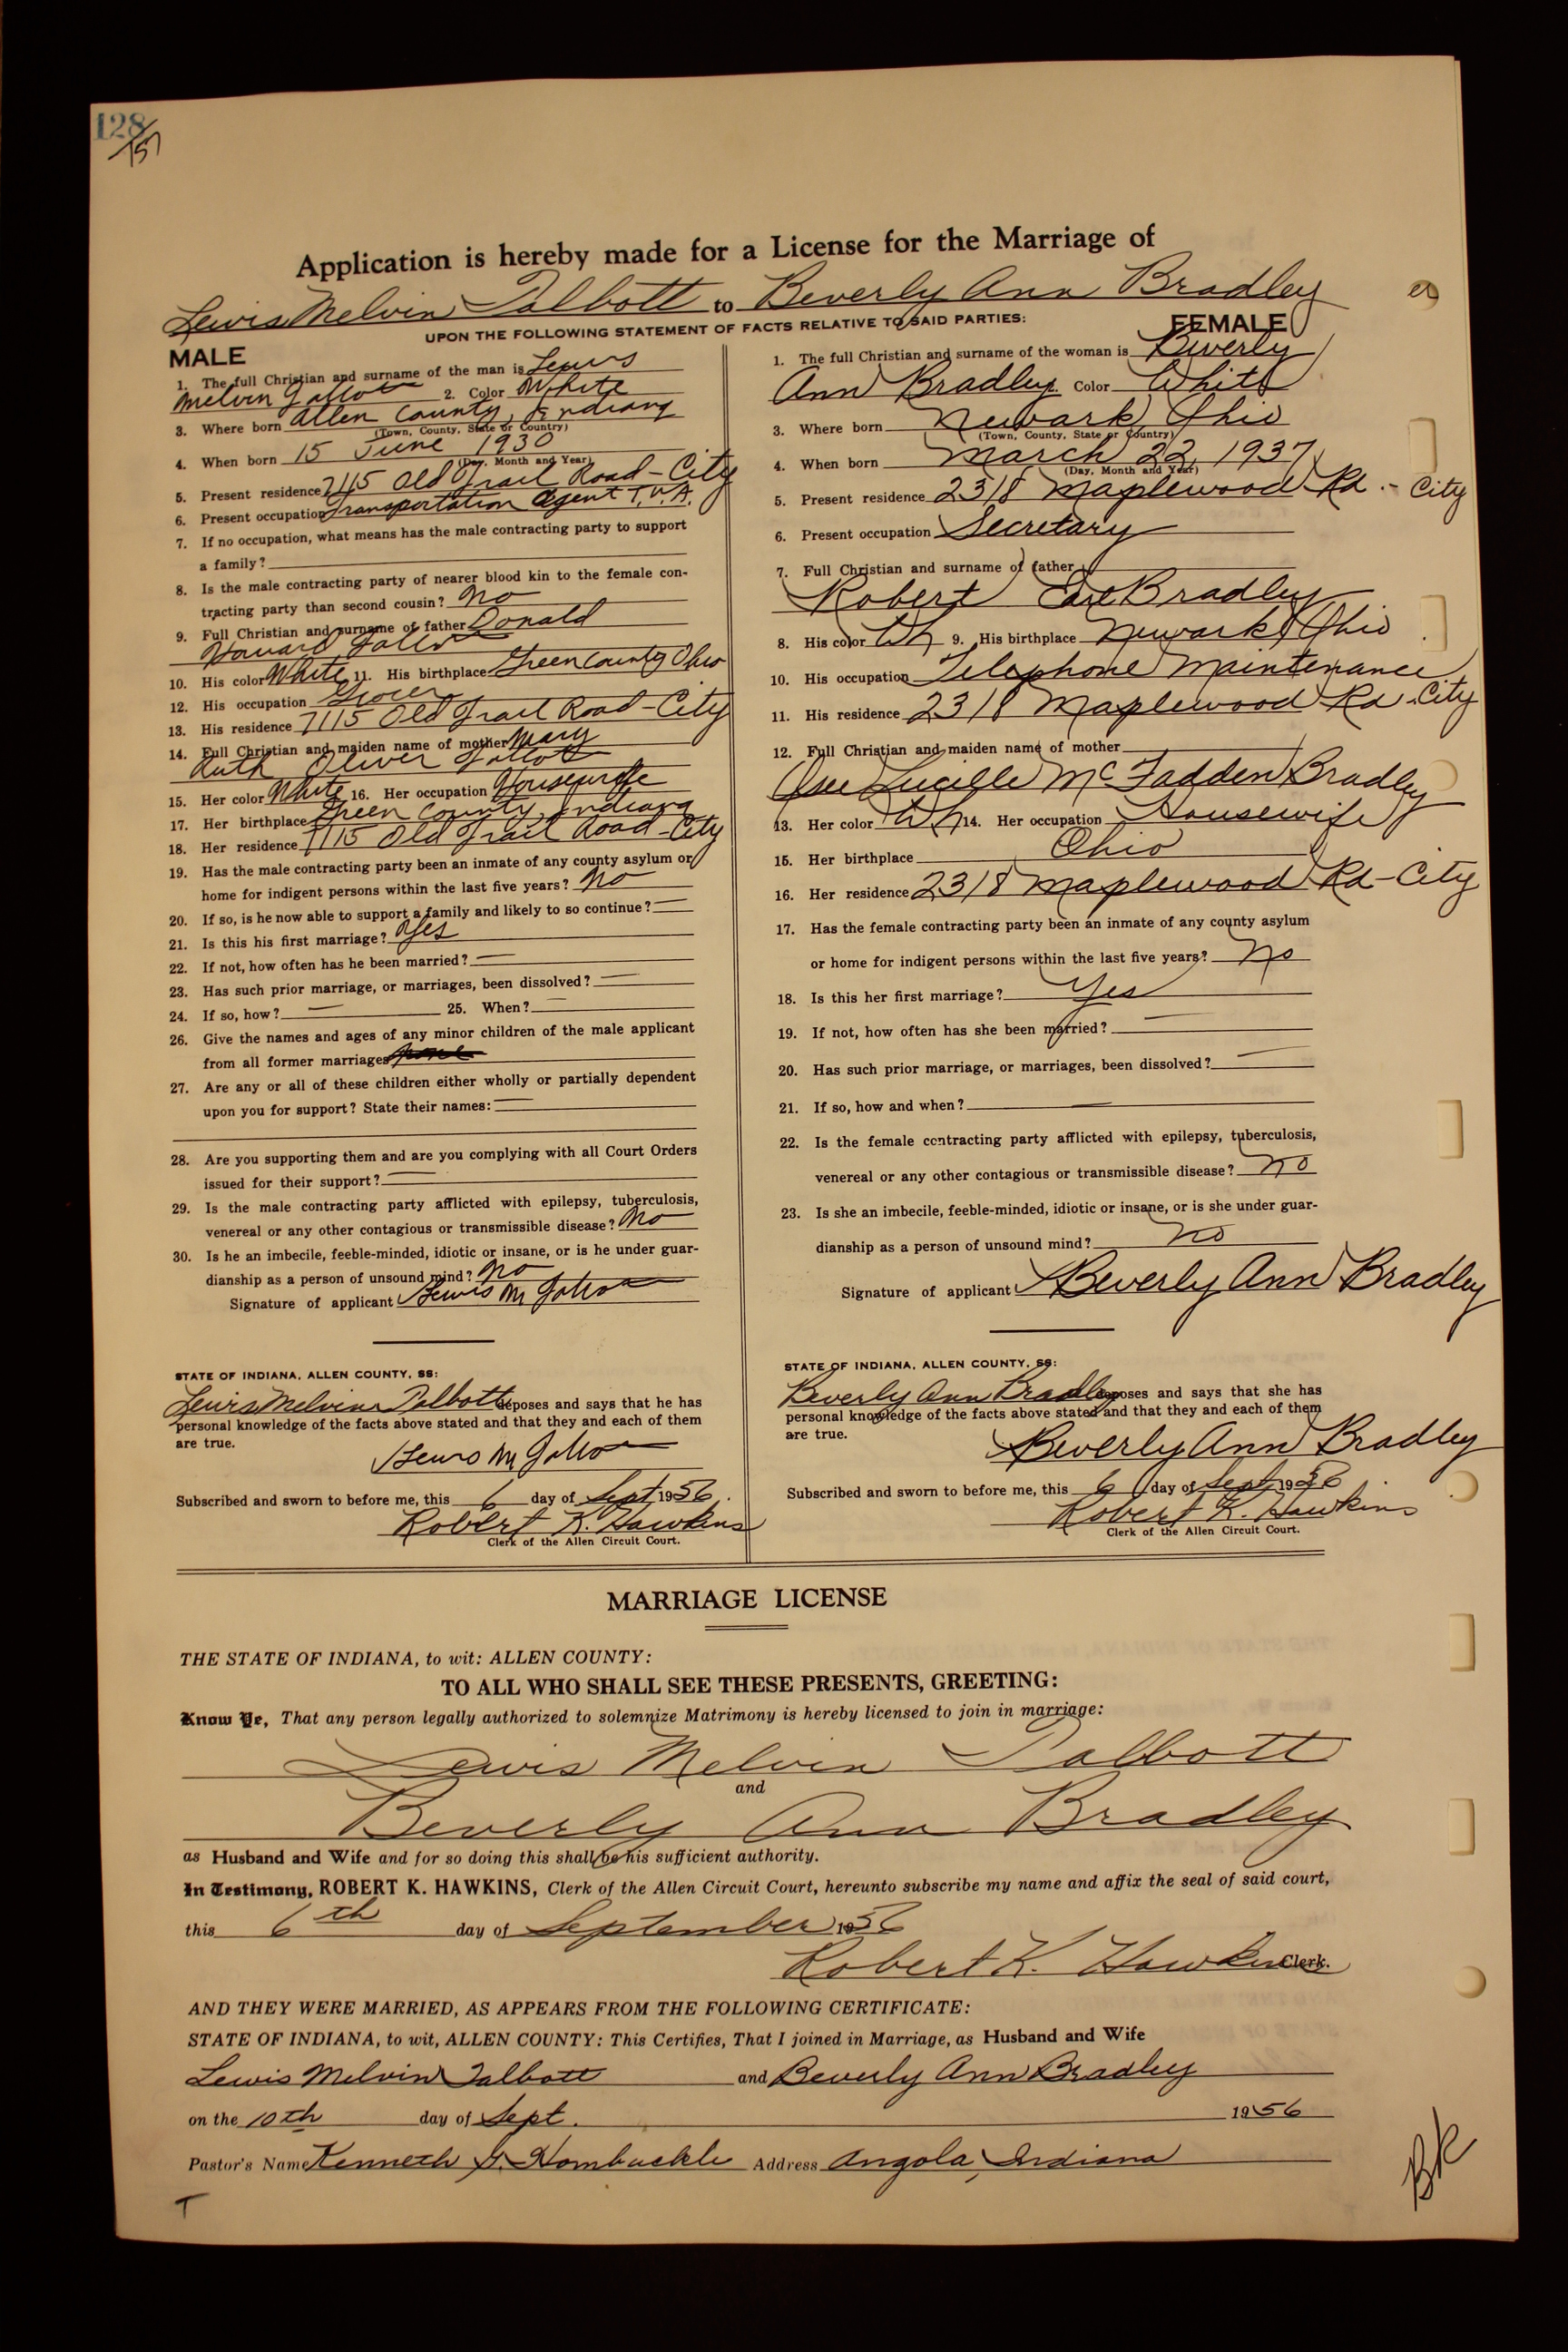 128
Application is hereby made for a License for the Marriage of
Lewis Melvin Talbott to Beverly Ann Bradley
UPON THE FOLLOWING STATEMENT OF FACTS RELATIVE TO SAID PARTIES:
MALE
1. The full Christian and surname of the man is Lewis
Melvin Talbott 2. Color White
3. Where born Allen County, Indiana
(Town, County, State or Country)
4. When born 15 June 1930
(Day, Month and Year)
5. Present residence 7115 Old Trail Road - City
6. Present occupation Transportation Agent T.W.A.
7. If no occupation, what means has the male contracting party to support
a family?
8. Is the male contracting party of nearer blood kin to the female con-
tracting party than second cousin? No
9. Full Christian and surname of father Donald
Howard Talbott
10. His color White 11. His birthplace Green County Ohio
12. His occupation Grocer
13. His residence 7115 Old Trail Road - City
14. Full Christian and maiden name of mother Mary
Ruth Oliver Talbott
15. Her color White 16. Her occupation Housewife
17. Her birthplace Green County, Indiana
18. Her residence 7115 Old Trail Road - City
19. Has the male contracting party been an inmate of any county asylum or
home for indigent persons within the last five years? No
20. If so, is he now able to support a family and likely to so continue? —
21. Is this his first marriage? Yes
22. If not, how often has he been married? —
23. Has such prior marriage, or marriages, been dissolved? —
24. If so, how? — 25. When? —
26. Give the names and ages of any minor children of the male applicant
from all former marriages
27. Are any or all of these children either wholly or partially dependent
upon you for support? State their names: —
28. Are you supporting them and are you complying with all Court Orders
issued for their support? —
29. Is the male contracting party afflicted with epilepsy, tuberculosis,
venereal or any other contagious or transmissible disease? No
30. Is he an imbecile, feeble-minded, idiotic or insane, or is he under guar-
dianship as a person of unsound mind? No
Signature of applicant Lewis M Talbott
STATE OF INDIANA, ALLEN COUNTY, SS:
Lewis Melvin Talbott deposes and says that he has
personal knowledge of the facts above stated and that they and each of them
are true.
Lewis M Talbott
Subscribed and sworn to before me, this 6 day of Sept, 1956.
Robert K. Hawkins
Clerk of the Allen Circuit Court.
FEMALE
1. The full Christian and surname of the woman is Beverly
Ann Bradley. Color White
3. Where born Newark, Ohio
(Town, County, State or Country)
4. When born March 22, 1937
(Day, Month and Year)
5. Present residence 2318 Maplewood Rd. - City
6. Present occupation Secretary
7. Full Christian and surname of father
Robert Earl Bradley
8. His color Wh 9. His birthplace Newark, Ohio
10. His occupation Telephone Maintenance
11. His residence 2318 Maplewood Rd. City
12. Full Christian and maiden name of mother
Lucille McFadden Bradley
13. Her color Wh 14. Her occupation Housewife
15. Her birthplace Ohio
16. Her residence 2318 Maplewood Rd - City
17. Has the female contracting party been an inmate of any county asylum
or home for indigent persons within the last five years? No
18. Is this her first marriage? Yes
19. If not, how often has she been married? —
20. Has such prior marriage, or marriages, been dissolved? —
21. If so, how and when? —
22. Is the female contracting party afflicted with epilepsy, tuberculosis,
venereal or any other contagious or transmissible disease? No
23. Is she an imbecile, feeble-minded, idiotic or insane, or is she under guar-
dianship as a person of unsound mind? No
Signature of applicant Beverly Ann Bradley
STATE OF INDIANA, ALLEN COUNTY, SS:
Beverly Ann Bradley deposes and says that she has
personal knowledge of the facts above stated and that they and each of them
are true.
Beverly Ann Bradley
Subscribed and sworn to before me, this 6 day of Sept, 1956
Robert K. Hawkins
Clerk of the Allen Circuit Court.
MARRIAGE LICENSE
THE STATE OF INDIANA, to wit: ALLEN COUNTY:
TO ALL WHO SHALL SEE THESE PRESENTS, GREETING:
Know Ye, That any person legally authorized to solemnize Matrimony is hereby licensed to join in marriage:
Lewis Melvin Talbott
and
Beverly Ann Bradley
as Husband and Wife and for so doing this shall be his sufficient authority.
In Testimony, ROBERT K. HAWKINS, Clerk of the Allen Circuit Court, hereunto subscribe my name and affix the seal of said court,
this 6th day of September 1956
Robert K. Hawkins Clerk.
AND THEY WERE MARRIED, AS APPEARS FROM THE FOLLOWING CERTIFICATE:
STATE OF INDIANA, to wit, ALLEN COUNTY: This Certifies, That I joined in Marriage, as Husband and Wife
Lewis Melvin Talbott and Beverly Ann Bradley
on the 10th day of Sept. 1956
Pastor's Name Kenneth Hornbuckle Address Angola, Indiana
T
BK